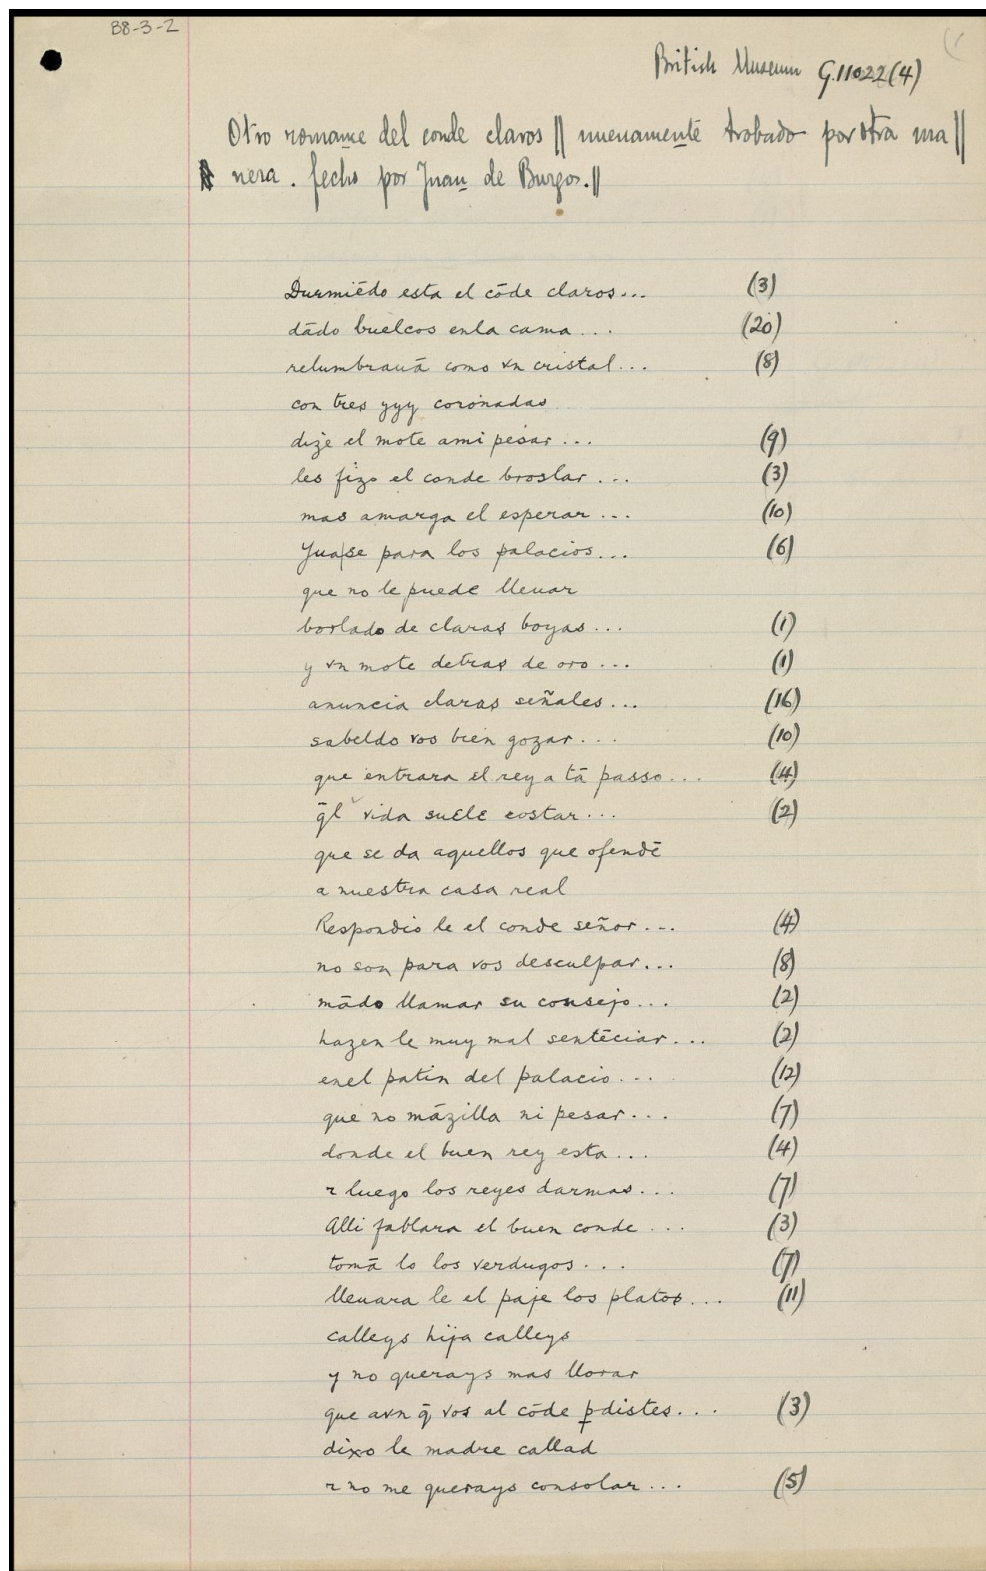 B8-3-2
British Museum G.11022(4)
Otro romance del conde claros || nueuamente trobado por otra ma ||
nera. fecho por Juan de Burgos.||
Durmiēdo esta el cōde claros... (3)
dādo buelcos enla cama... (20)
relumbrauā como vn cristal... (8)
con tres yyy coronadas
dize el mote ami pesar... (9)
les fizo el conde broslar... (3)
mas amarga el esperar... (10)
Yua|se para los palacios... (6)
que no le puede lleuar
borlado de claras boyas... (1)
y vn mote detras de oro... (1)
anuncia claras señales... (16)
sabeldo vos bien gozar... (10)
que entrara el rey a tā passo... (4)
q̄l vida suele costar... (2)
que se da aquellos que ofendē
a nuestra casa real
Respondio le el conde señor... (4)
no son para vos desculpar... (8)
mādo llamar su consejo... (2)
hazen le muy mal sentēciar... (2)
enel patin del palacio... (12)
que no māzilla ni pesar... (7)
donde el buen rey esta... (4)
⁊ luego los reyes darmas... (7)
Alli fablara el buen conde... (3)
tomā lo los verdugos... (7)
lleuara le el paje los platos... (11)
calleys hija calleys
y no querays mas llorar
que avn q̄ vos al cōde p̱distes... (3)
dixo le madre callad
⁊ no me querays consolar... (5)